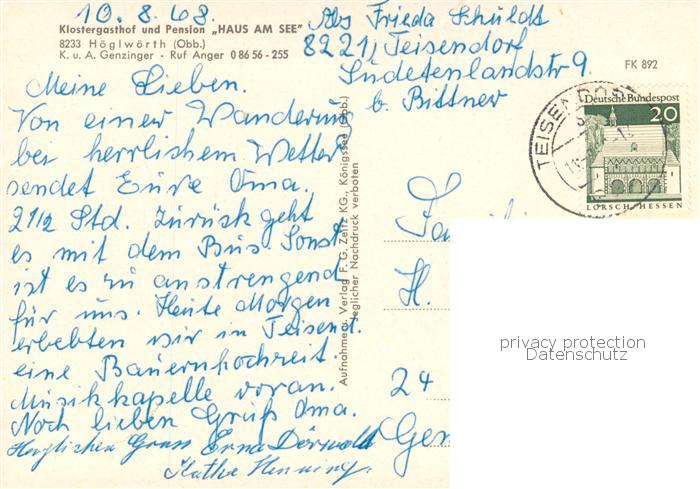 10.8.68.
Klostergasthof und Pension „HAUS AM SEE"
8233 Höglwörth (Obb.)
K. u. A. Genzinger - Ruf Anger 0 86 56 - 255
Abs Frieda Schuldt
8221, Teisendorf
Sudetenlandstr 9.
b. Bittner
FK 892
Meine Lieben.
Von einer Wanderung
bei herrlichem Wetter
sendet Eure Oma.
2 1/2 Std. Zurück geht
es mit dem Bus Sonst
ist es zu anstrengend
für uns. Heute Morgen
erlebten wir in Teisend.
eine Bauernhochzeit.
Musikkapelle voran.
Noch lieben Gruß Oma.
Herzlichen Gruss Erna
Käthe Henning
Aufnahme u. Verlag F. G. Zeitz KG., Königssee (Obb.)
Jeglicher Nachdruck verboten
TEISENDORF
Deutsche Bundespost
20
LORSCH/HESSEN
H.
24
privacy protection
Datenschutz